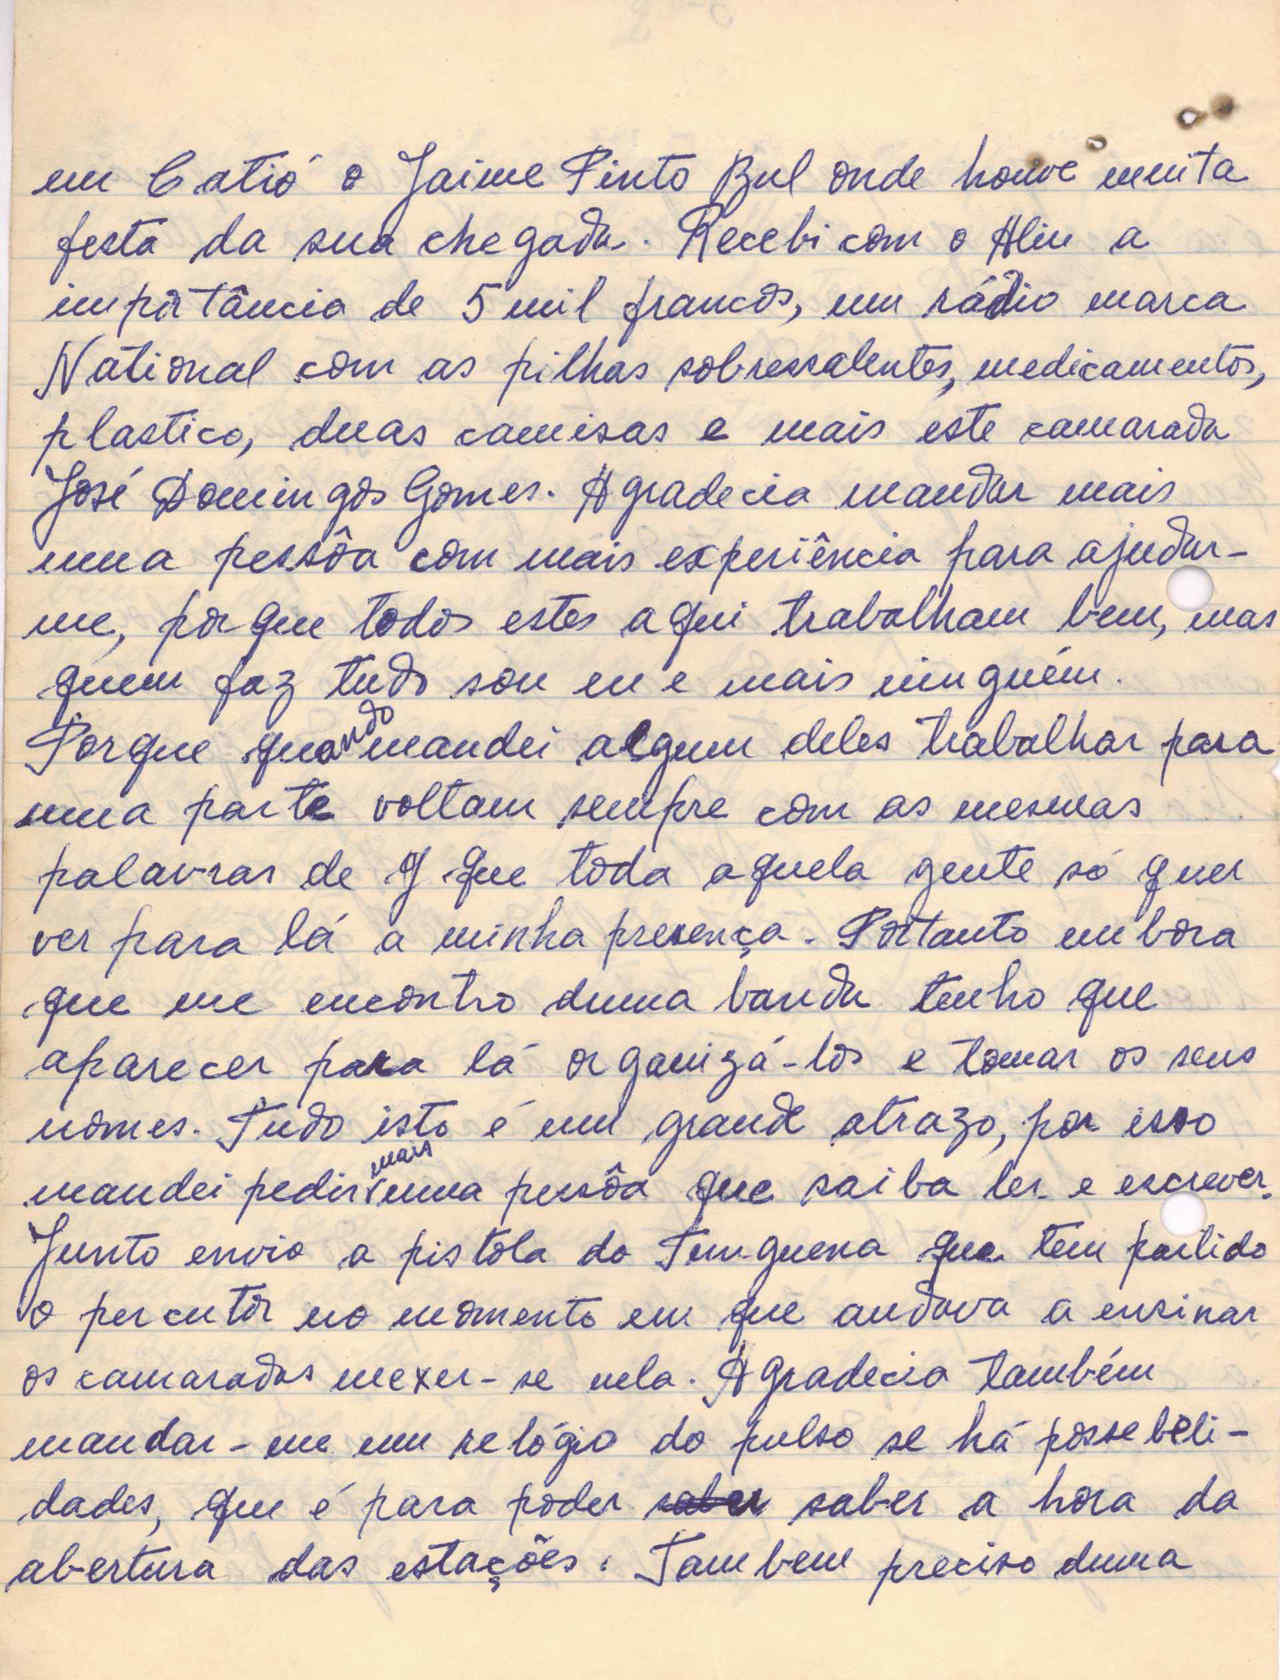 em Catió o Jaime Pinto Bul onde houve muita
festa da sua chegada. Recebi com o Aliu a
importância de 5 mil francos, um rádio marca
National com as pilhas sobressalentes, medicamentos,
plastico, duas camisas e mais este camarada
José Domingos Gomes. Agradecia mandar mais
uma pessôa com mais experiência para ajudar-
me, porque todos estes aqui trabalham bem, mas
quem faz tudo sou eu e mais ninguém.
Porque quando mandei algum deles trabalhar para
uma parte voltam sempre com as mesmas
palavras de q que toda aquela gente só quer
ver para lá a minha presença. Portanto embora
que me encontro duma banda tenho que
aparecer para lá organizá-los e tomar os seus
nomes. Tudo isto é um grande atrazo, por isso
mandei pedir mais uma pessôa que saiba ler e escrever.
Junto envio a pistola do que tem partido
o percutor no momento em que andava a ensinar
os camaradas mexer-se nela. Agradecia também
mandar-me um relógio do pulso se há possebeli-
dades, que é para poder saber saber a hora da
abertura das estações. Tambem preciso duma